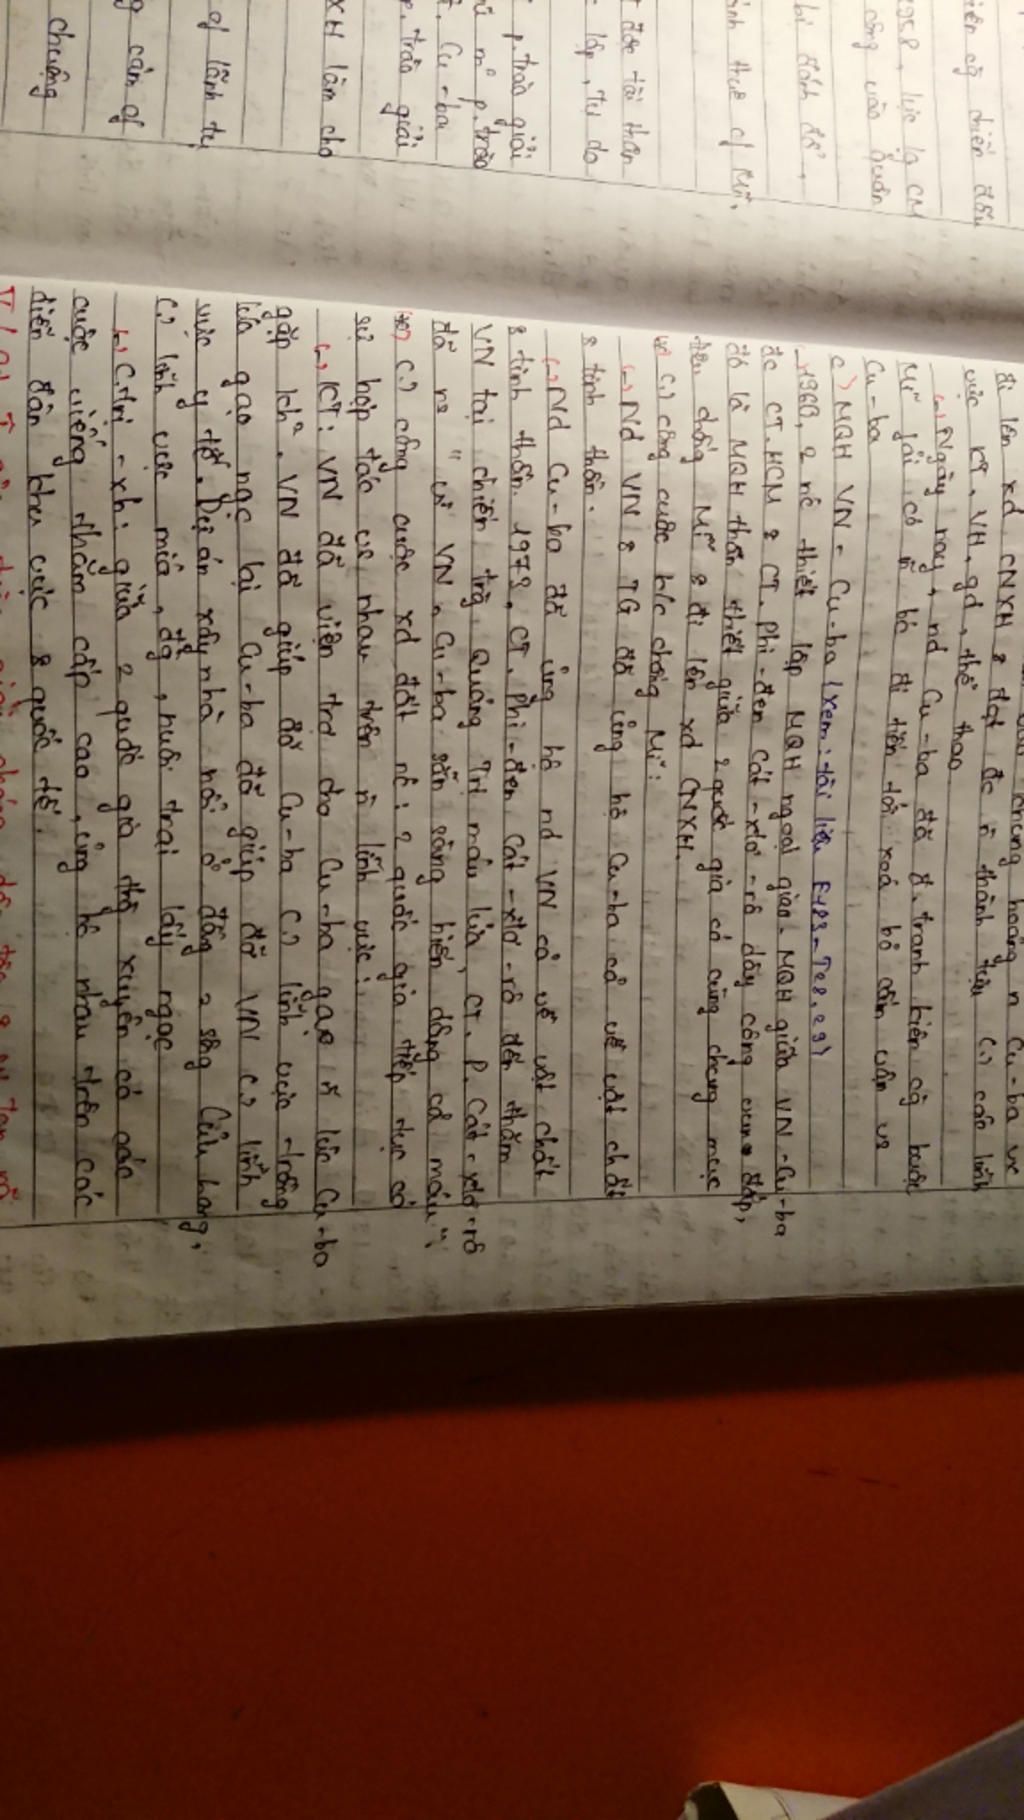 iên cg chiến đấu
1958, lực lg CM
công vào quân
bị đánh đổ,
ành thuê c/ Mĩ.
t độc tài thân
lập, tự do
p.trào giải
ũ nc p.trào
Cu-ba
p.trào giải
XH làm cho
c/ lãnh tụ
g cản c/
chuộng
đi lên xd CNXH & đạt đc n thành tựu
vực KT, VH, gd, thể thao
Ngày nay, nd Cu-ba đã đ.tranh kiên cg buộc
Mĩ fải có n bc đi tiến tới xoá bỏ cấm vận vs
Cu-ba
c) MQH VN - Cu-ba (xem: tài liệu
1960, 2 nc thiết lập MQH ngoại giao. MQH giữa VN-Cu-ba
đc CT.HCM & CT. Phi-đen Cát-xtơ-rô dầy công vun đắp,
đó là MQH thân thiết giữa 2 quốc gia có cùng chung mục
tiêu chống Mĩ & đi lên xd CNXH.
công cuộc k/c chống Mĩ:
Nd VN & TG đã ủng hộ Cu-ba cả về vật chất
& tinh thần.
Nd Cu-ba đã ủng hộ nd VN cả về vật chất
& tinh thần. 1973, CT. Phi-đen Cát-xtơ-rô đến thăm
VN tại chiến trg Quảng Trị máu lửa, CT. P. Cát-xtơ-rô
đã nói "vì VN, Cu-ba sẵn sàng hiến dâng cả máu";
công cuộc xd đất nc: 2 quốc gia tiếp tục có
sự hợp tác vs nhau trên n lĩnh vực:
KT: VN đã viện trợ cho Cu-ba gạo n lúc Cu-ba
gặp khó. VN đã giúp đỡ Cu-ba lĩnh vực trồng
lúa gạo ngc lại Cu-ba đã giúp đỡ VN lĩnh
vực y tế. Dự án xây nhà nổi ở đồng = sông Cửu Long,
lĩnh vực mía, đg, nuôi trại lấy ngọc
C.trị - xh: giữa 2 quốc gia thg xuyên có các
cuộc viếng thăm cấp cao, ủng hộ nhau trên các
diễn đàn khu vực & quốc tế.